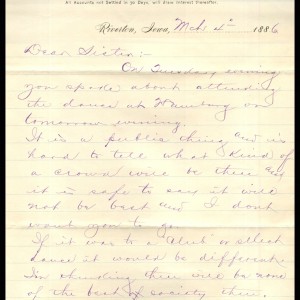 All Accounts not Settled in 30 Days, will draw interest thereafter.
Riverton, Iowa, Mch 4" 1886
Dear Sister:-
On Tuesday evening
you spoke about attending
the dance at Hamburg on
tomorrow evening.
It is a public thing and is
hard to tell what kind of
a crowd will be there and
it is safe to say it will
not be best and I dont
want you to go.
If it was to a "Club" or select
dance it would be different
In thinking there will be none
of the best of society there,